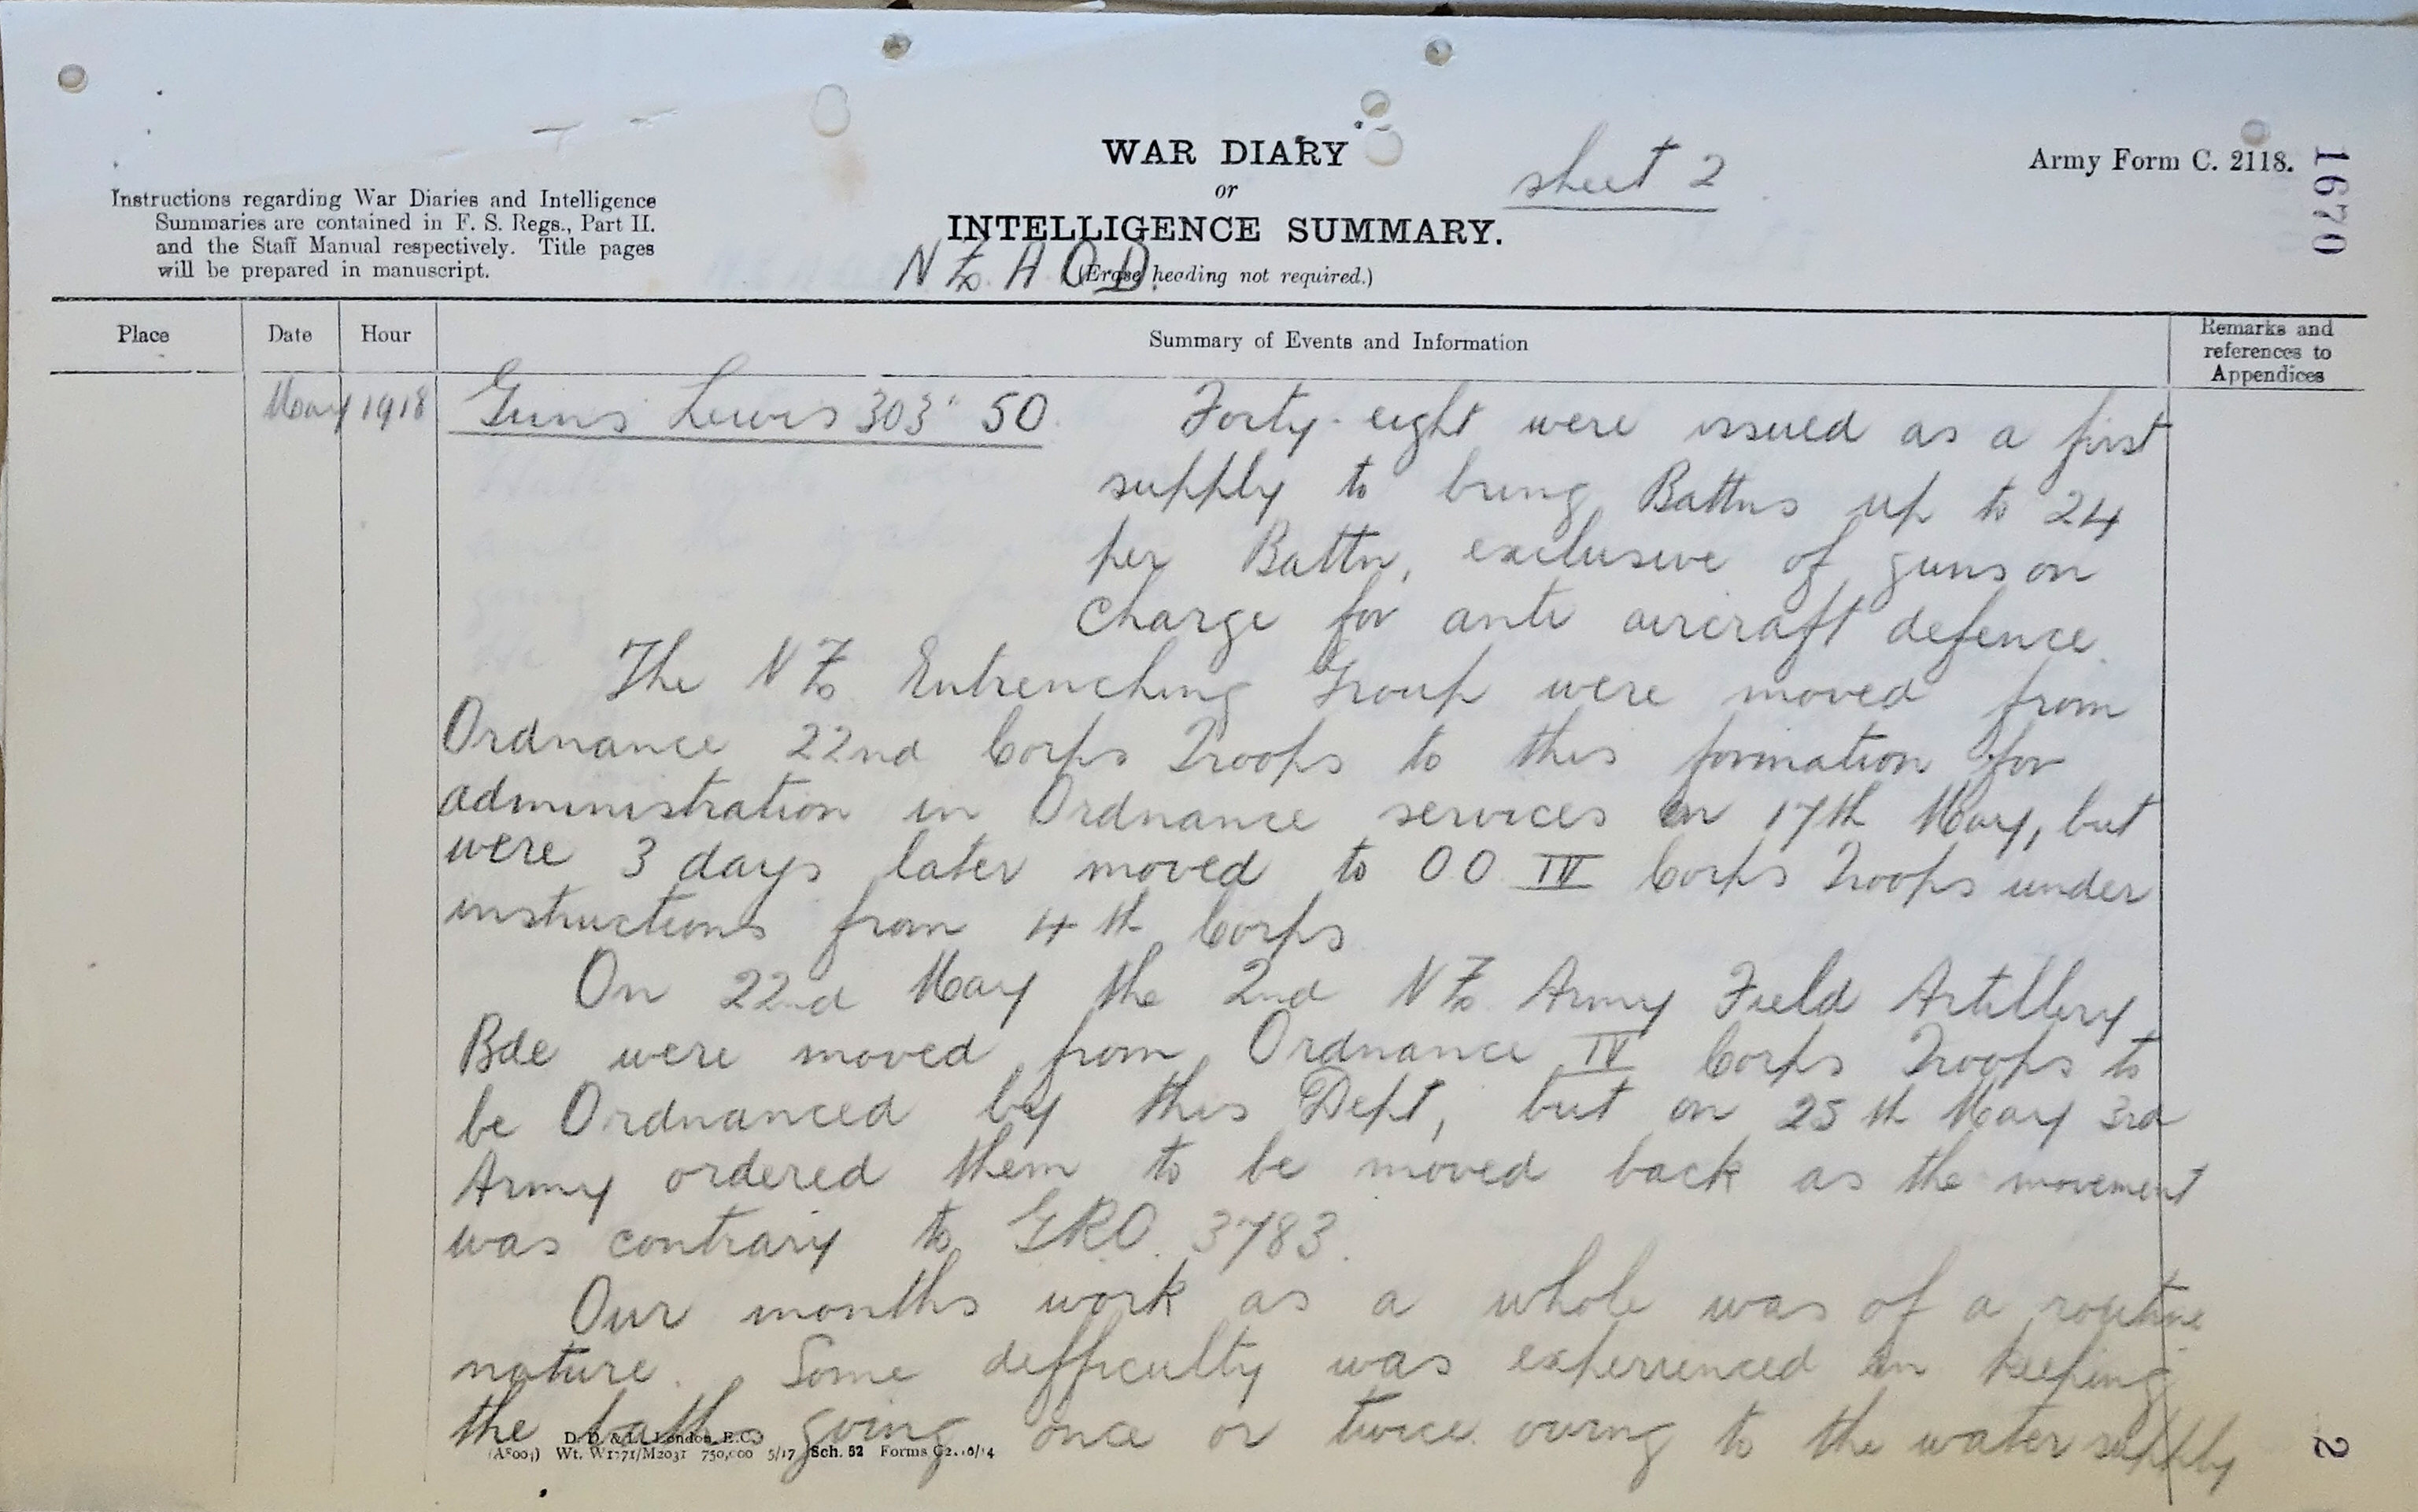 WAR DIARY
or
INTELLIGENCE SUMMARY.
(Erase heading not required.)
sheet 2
Army Form C. 2118.
1670
Instructions regarding War Diaries and Intelligence
Summaries are contained in F. S. Regs., Part II.
and the Staff Manual respectively. Title pages
will be prepared in manuscript.
N Zo. A O D.
Place
Date
Hour
Summary of Events and Information
Remarks and
references to
Appendices
May 1918
Guns Lewis 303" 50. Forty-eight were issued as a first
supply to bring Battns up to 24
per Battn, exclusive of guns on
charge for ante aircraft defence.
The N Zo. Entrenching Group were moved from
Ordnance 22nd Corps Troops to this formation for
administration in Ordnance services on 17th May, but
were 3 days later moved to OO IV Corps Troops under
instructions from 4th Corps
On 22nd May the 2nd N Zo. Army Field Artillery
Bde were moved from Ordnance IV Corps Troops to
be Ordnanced by this Dept, but on 25th May 3rd
Army ordered them to be moved back as the movement
was contrary to GRO. 3783.
Our months work as a whole was of a routine
nature. Some defficulty was experienced in keeping
the baths going once or twice owing to the water supply
D. D. & L., London, E.C.
Wt. W1771/M2031 750,000 5/17 Sch. 52 Forms
2